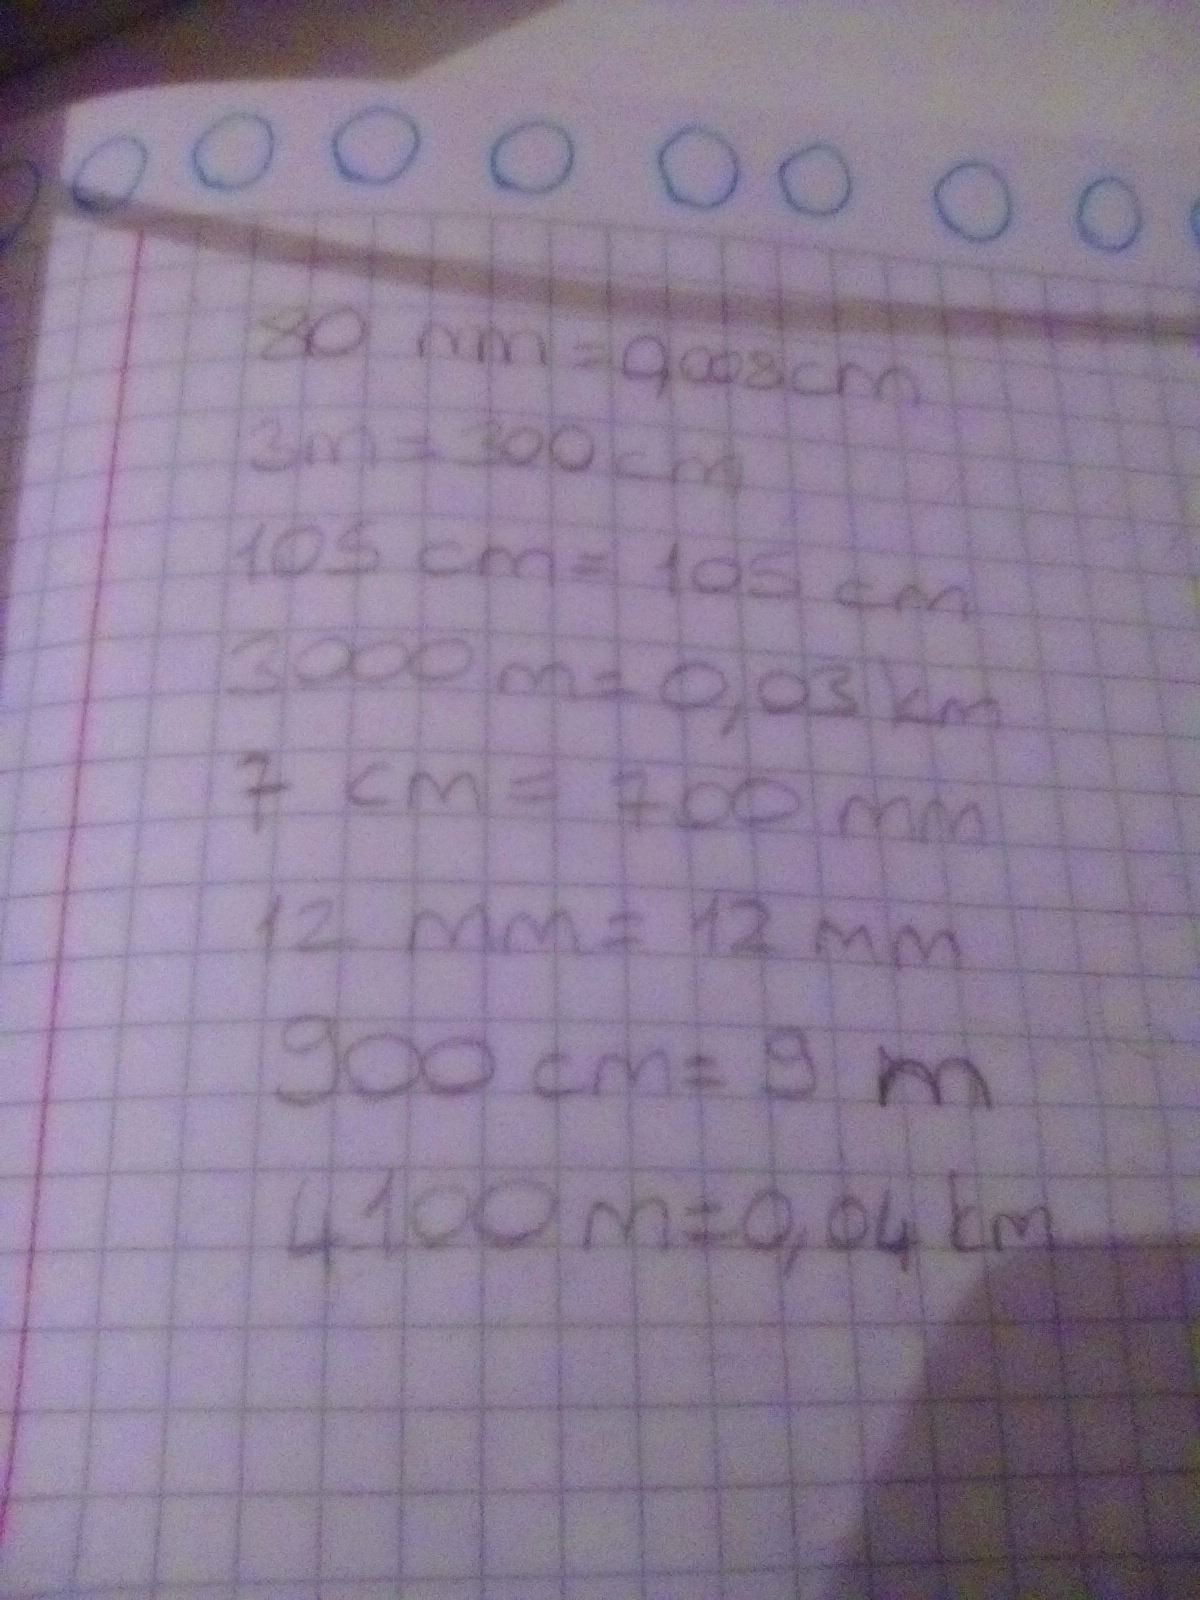 80 mm = 0,008 cm
3m = 300 cm
105 cm = 105 cm
3000 m = 0,03 km
7 cm = 700 mm
12 mm = 12 mm
900 cm = 9 m
4100 m = 0,04 km